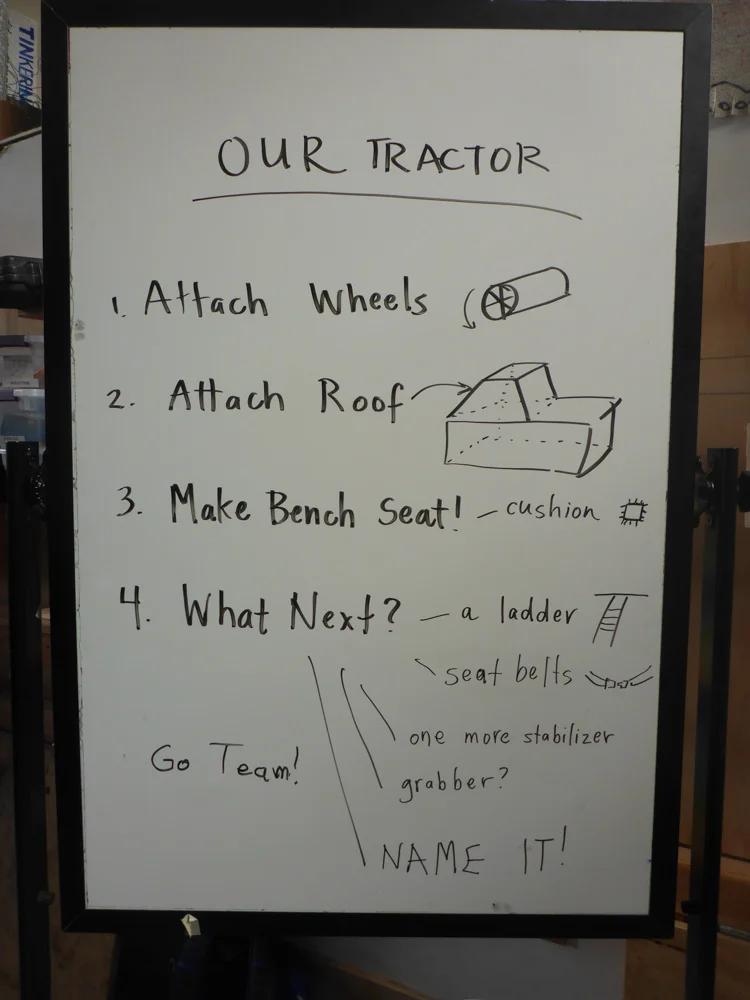 TINKERIN
OUR TRACTOR
1. Attach Wheels
2. Attach Roof
3. Make Bench Seat! - cushion
4. What Next? - a ladder
- seat belts
one more stabilizer
Go Team!
grabber?
NAME IT!